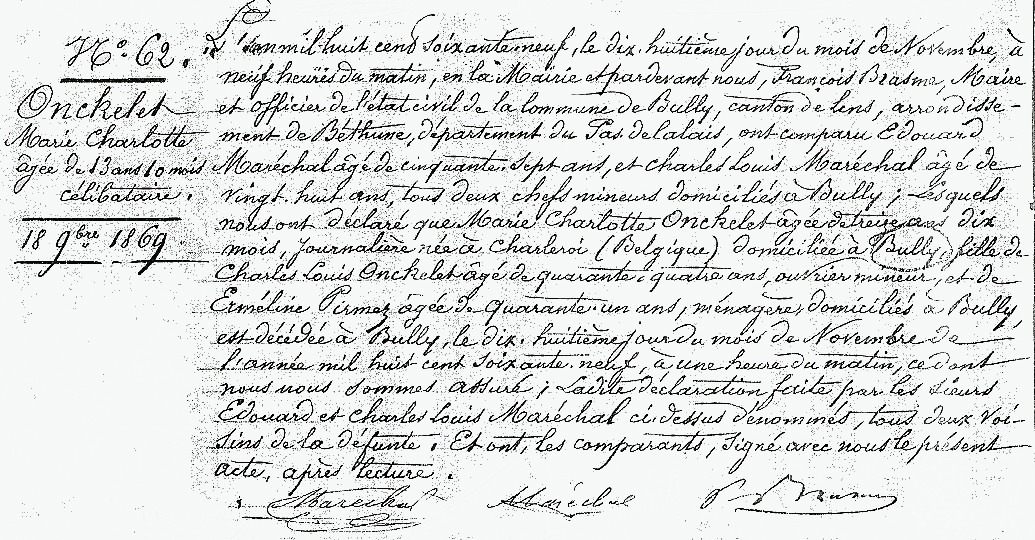 N° 62.
Onckelet
Marie Charlotte
âgée de 13 ans 10 mois
célibataire.
18 9bre 1869
L'an mil huit cent soixante-neuf, le dix-huitième jour du mois de Novembre, à
neuf heures du matin, en la Mairie et pardevant nous, François Brasme, Maire
et officier de l'état civil de la commune de Bully, canton de Lens, arrondisse-
ment de Béthune, département du Pas de Calais, ont comparu Edouard
Maréchal âgé de cinquante-sept ans, et Charles Louis Maréchal âgé de
vingt-huit ans, tous deux chefs mineurs domiciliés à Bully ; Lesquels
nous ont déclaré que Marie Charlotte Onckelet âgée de treize ans dix
mois, Journalière née à Charleroi (Belgique) domiciliée à Bully, fille de
Charles Louis Onckelet âgé de quarante-quatre ans, ouvrier mineur, et de
Erméline Pirmez âgée de quarante-un ans, ménagère, domiciliés à Bully,
est décédée à Bully, le dix-huitième jour du mois de Novembre de
l'année mil huit cent soixante-neuf, à une heure du matin, ce dont
nous nous sommes assuré ; Ladite déclaration faite par les sieurs
Edouard et Charles Louis Maréchal ci-dessus dénommés, tous deux voi-
sins de la défunte. Et ont, les comparants, signé avec nous le présent
acte, après lecture.
Maréchal Maréchal